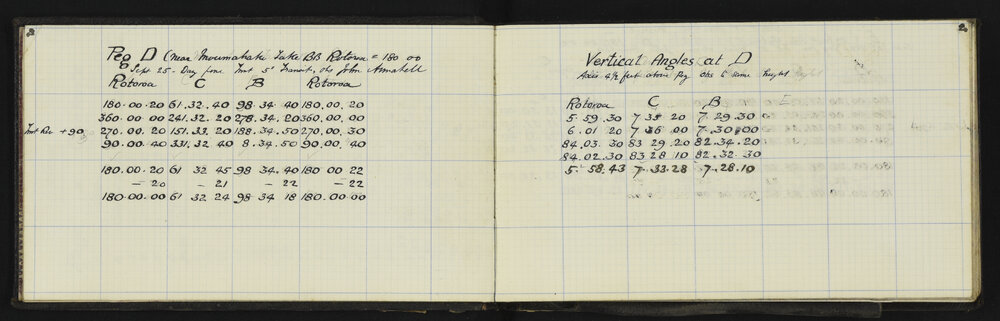 2
Peg D (Near Moumahaki Lake BB Rotoroa = 180 00
Sept 25 - Day fine Inst 5" Transit, obs John Annabell
Rotoroa C B Rotoroa
180.00.20 61.32.40 98.34.40 180.00.20
360.00.00 241.32.20 278.34.20 360.00.00
+90 270.00.20 151.33.20 188.34.50 270.00.30
90.00.40 331.32.40 8.34.50 90.00.40
180.00.20 61 32 45 98 34.40 180 00 22
- 20 - 21 - 22 - 22
180.00.00 61 32 24 98.34 18 180.00.00
2
Vertical Angles at D
Axis 4½ feet above Peg obs to same height
Rotoroa C B
5.59.30 7 35 20 7.29.30
6.01 20 7 36 00 7.30.00
84.03.30 83 29.20 82.34.20
84.02.30 83 28 10 82.32.30
5.58.43 7.33.28 7.28.10